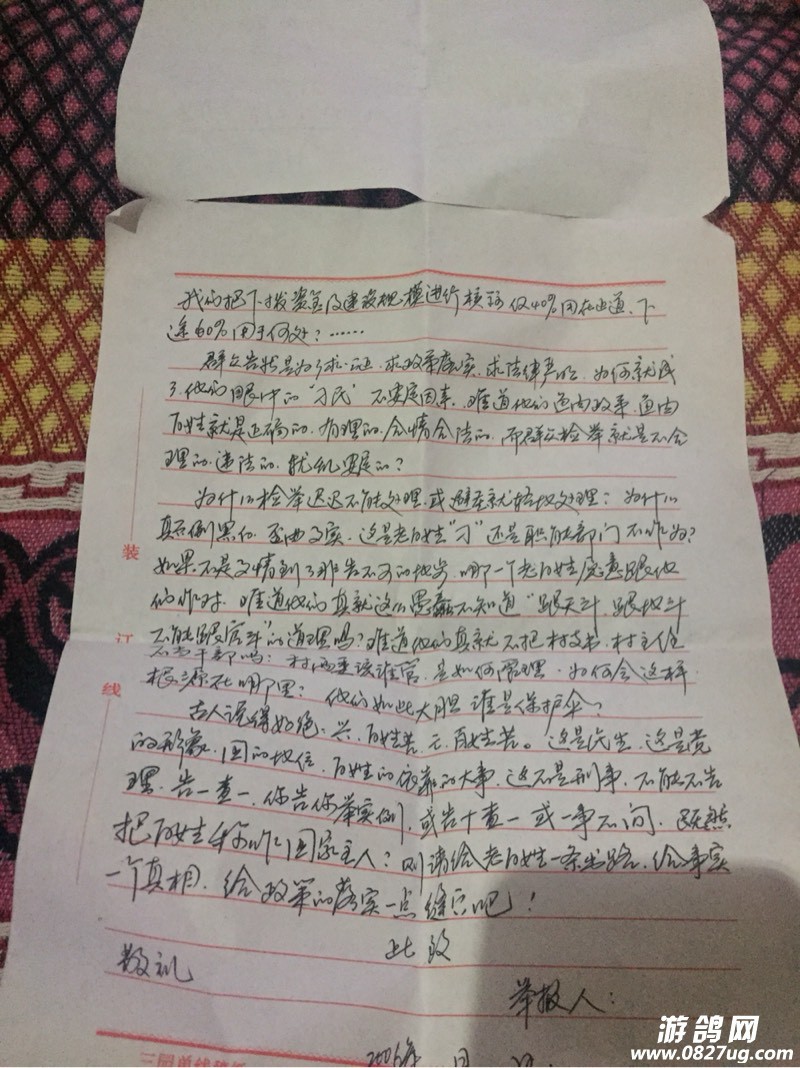 我们把下拨资金及建设规模进行核算仅40%用在正道、下
连60%用于何处？……
群众告状是为了求证、求政策落实、求法律严明、为何就成
了他们眼中的“刁民”不安定因素、难道他们鱼肉政策、鱼肉
百姓就是正确的、有理的、合情合法的、而群众检举就是不合
理的、违法的、扰乱安定的？
为什么检举迟迟不能处理或避重就轻地处理？为什么
真石倒黑白、歪曲事实、这是老百姓“刁”还是职能部门不作为？
如果不是事情到了非告不可的地步、哪一个老百姓愿意跟他
们作对、难道他们真就这么愚蠢不知道“跟天斗、跟地斗
不能跟官斗”的道理吗？难道他们真就不把村支书、村主任
不当干部吗？村两委该谁管、是如何管理、为何会这样
根源在哪里？他们如此大胆谁是保护伞？
古人说得好绝、兴、百姓苦、亡、百姓苦。这是民生、这是党
的形象、国的地位、百姓的依靠的大事、这不是刑事、不能不告
理、告一查一、你告你举实例、或告十查一或一事不问、既然
把百姓称作国家主人？则请给老百姓一条出路、给事实
一个真相、给政策的落实一点缝穴吧！
此致
敬礼
举报人：
2006年 月 日
装
订
线
三园单线稿纸
游鸽网
www.0827ug.com